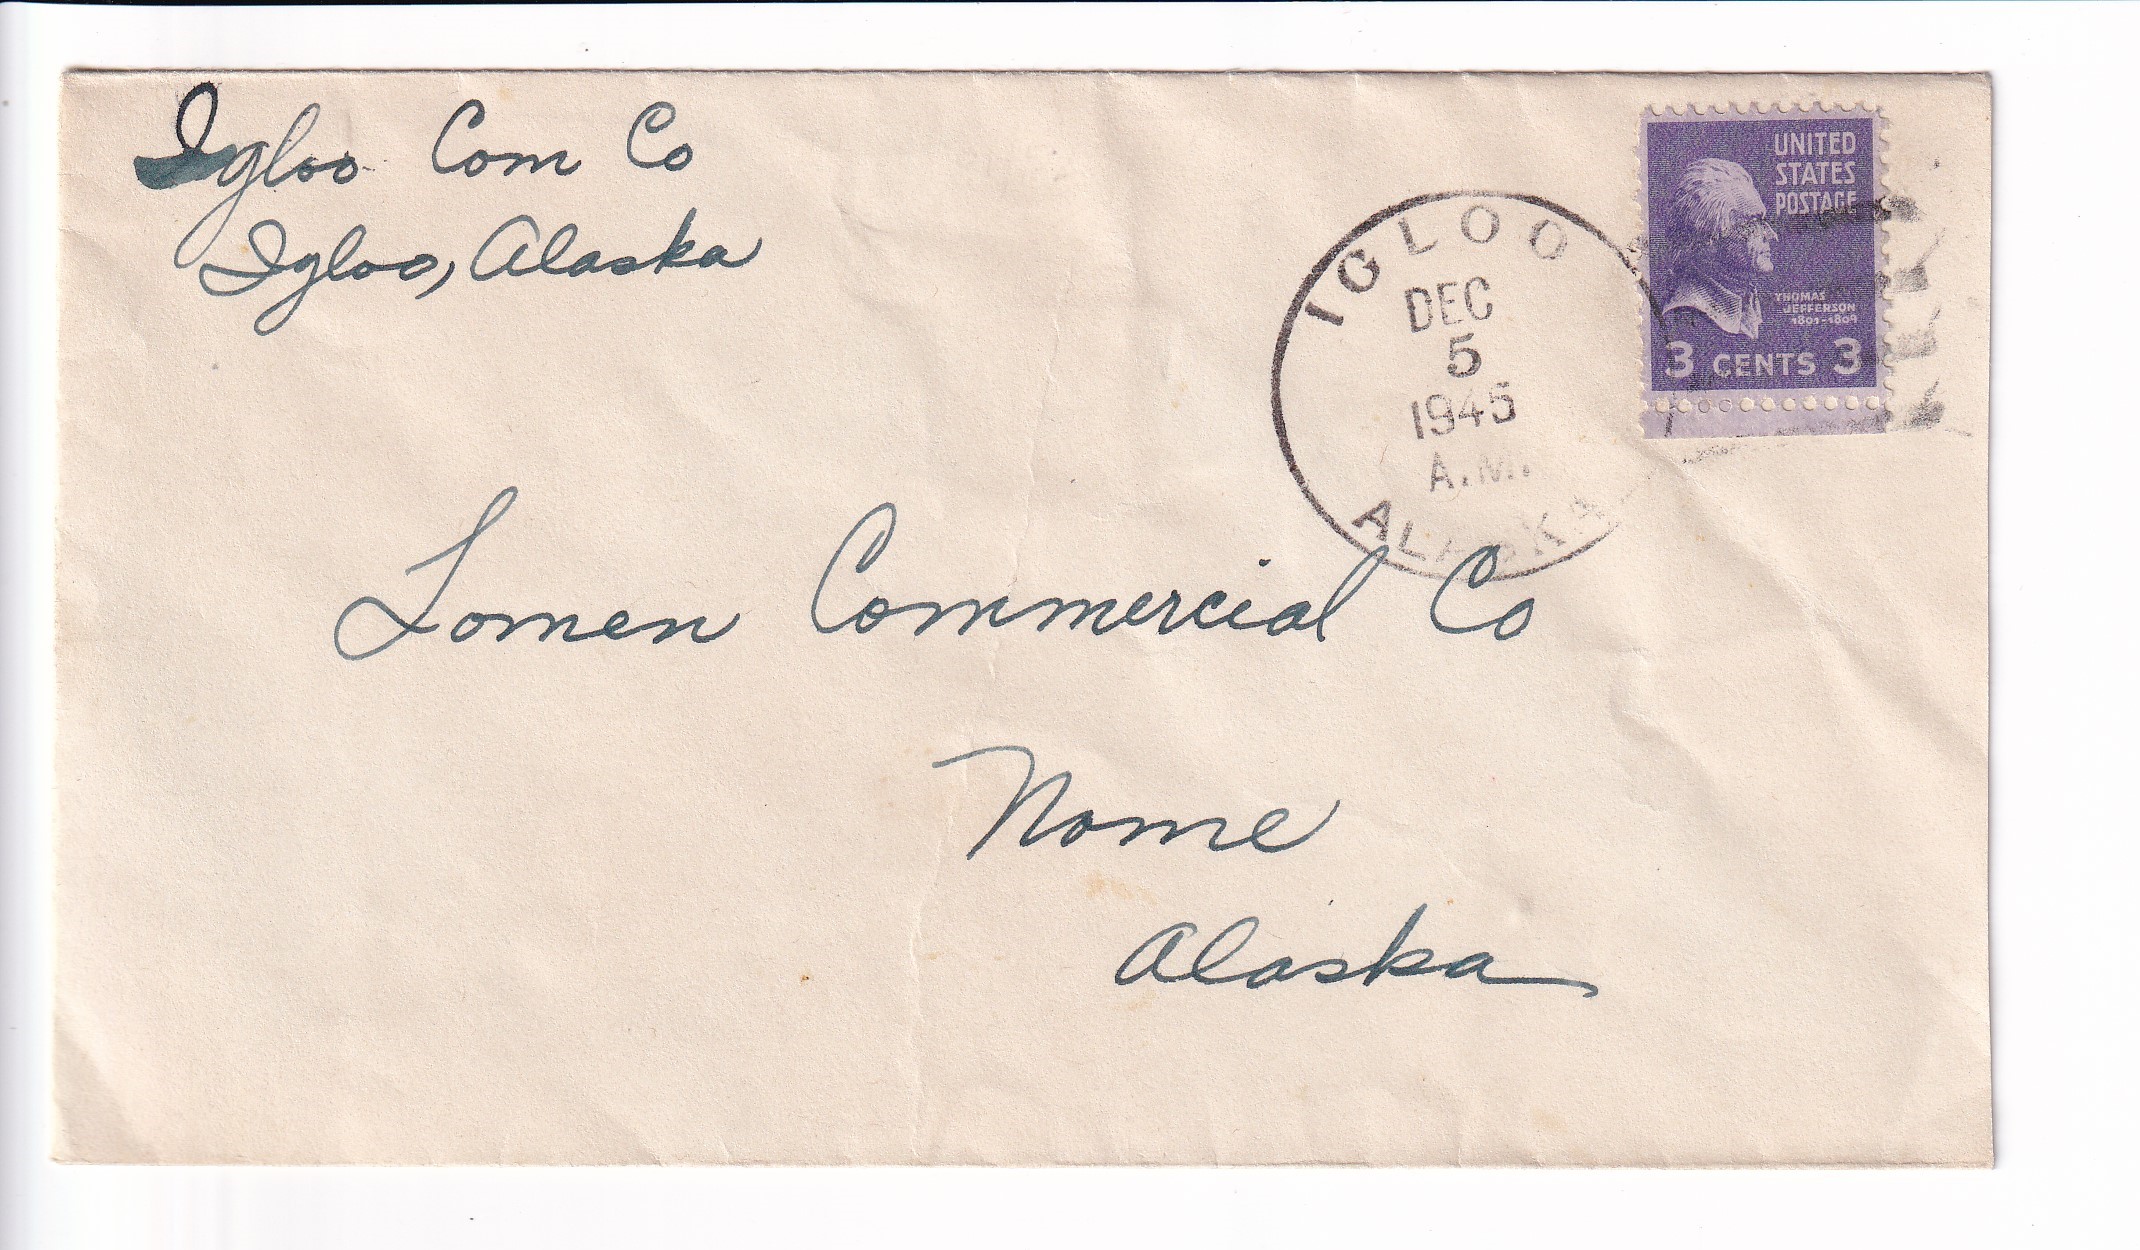 Igloo Com Co
Igloo, Alaska
IGLOO
DEC
5
1945
A.M.
ALASKA
UNITED
STATES
POSTAGE
THOMAS
JEFFERSON
1801-1809
3 CENTS 3
Lomen Commercial Co
Nome
Alaska